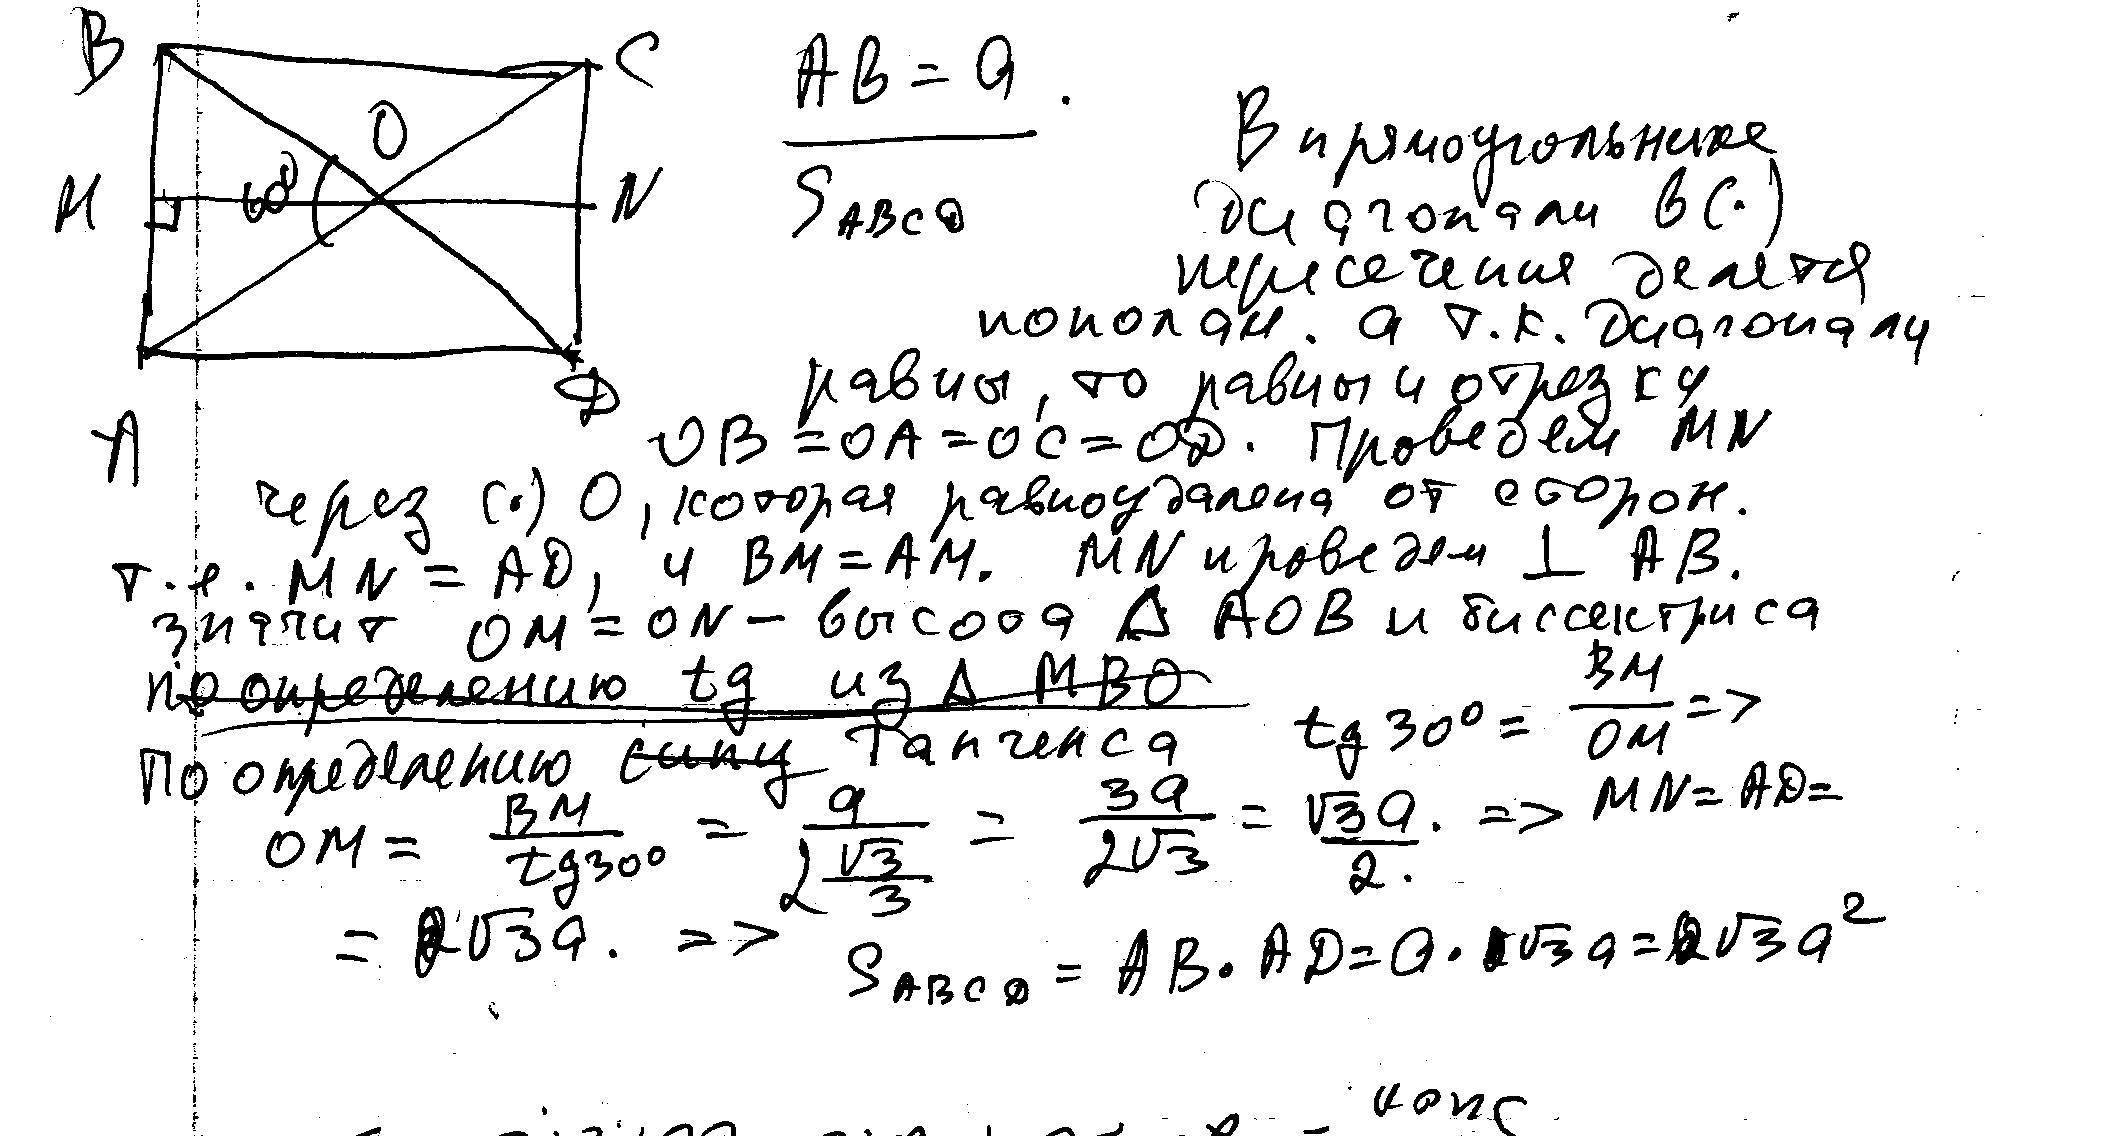 B C
O
M 60° N
A D
AB = a.
S ABCD
В прямоугольнике
диагонали в (·)
пересечения делятся
пополам. а т.к. диагонали
равны, то равны и отрезки
OB = OA = OC = OD. Проведем MN
через (·) O, которая равноудалена от сторон.
т.е. MN = AD, и BM = AM. MN проведем ⊥ AB.
значит OM = ON – высота Δ AOB и биссектриса
по определению tg из Δ MBO
По определению Тангенса tg 30° = BM/OM =>
OM = BM/tg30° = a/(2 √3/3) = 3a/(2√3) = √3a/2. => MN = AD =
= √3a. => S ABCD = AB · AD = a · √3a = √3a²